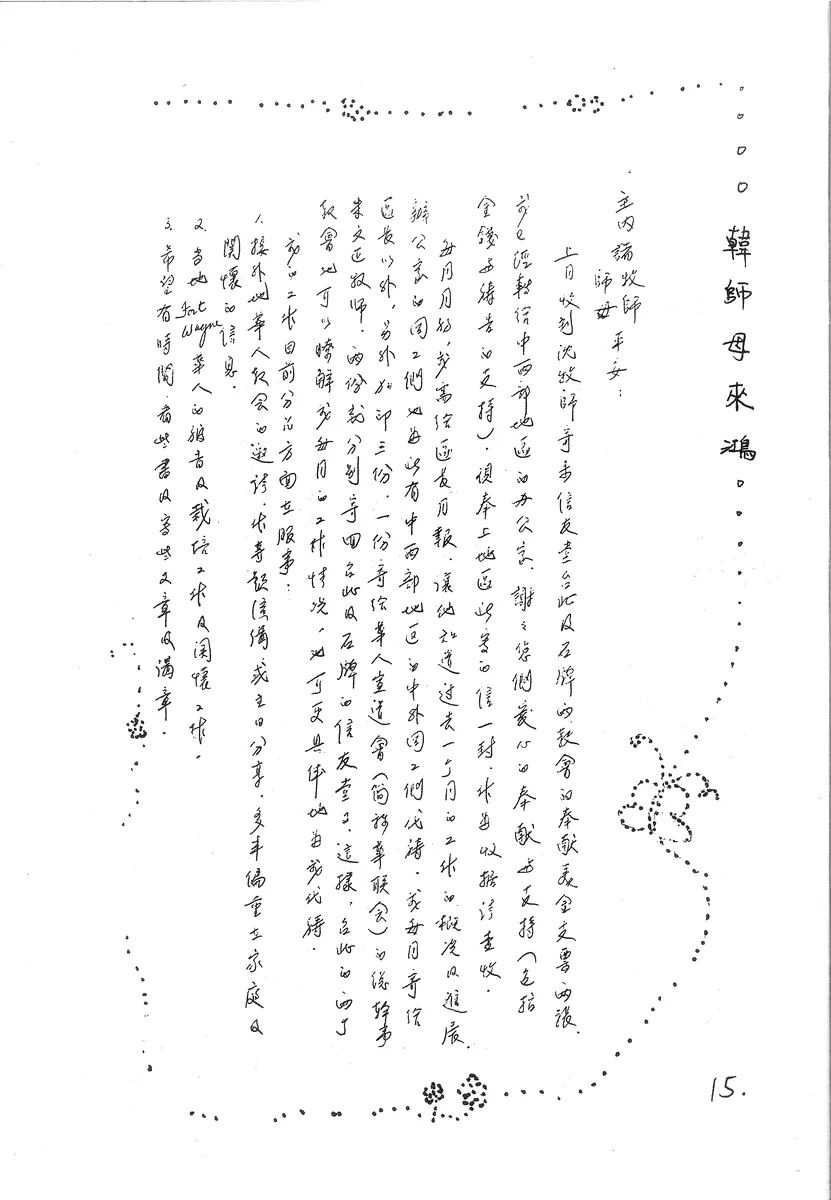 韓師母來鴻
主內諸牧師師母平安：
上月收到沈牧師寄來信友堂台北及石牌兩教會的奉獻美金支票兩張.
我已經轉给中西部地區的办公室. 謝謝您們愛心的奉獻与支持(包括
金錢与禱告的支持). 須奉上地區所寄的信一封. 作為收据请查收.
每月月初, 我寫给區長月報. 讓他知道过去一个月的工作的概况及進展.
辦公室的同工們也為此有中西部地區的中外同工們代禱. 我每月寄给
區長以外, 另外加印三份. 一份寄给華人宣道會(简称華联会)的总幹事
朱文正牧师. 兩份就分别寄回台北及石牌的信友堂了. 這樣, 台北的两个
教會也可以瞭解我每月的工作情况, 也可更具体地為我代禱.
我的工作目前分的方面在服事：
1. 接外地華人教会的邀请. 作專题信講或主日分享. 多半偏重在家庭及
関懷的信息.
2. 当地 Fort Wayne 華人的福音及栽培工作及関懷工作.
3. 希望有時間. 看些書及寫些文章及講章.
15.